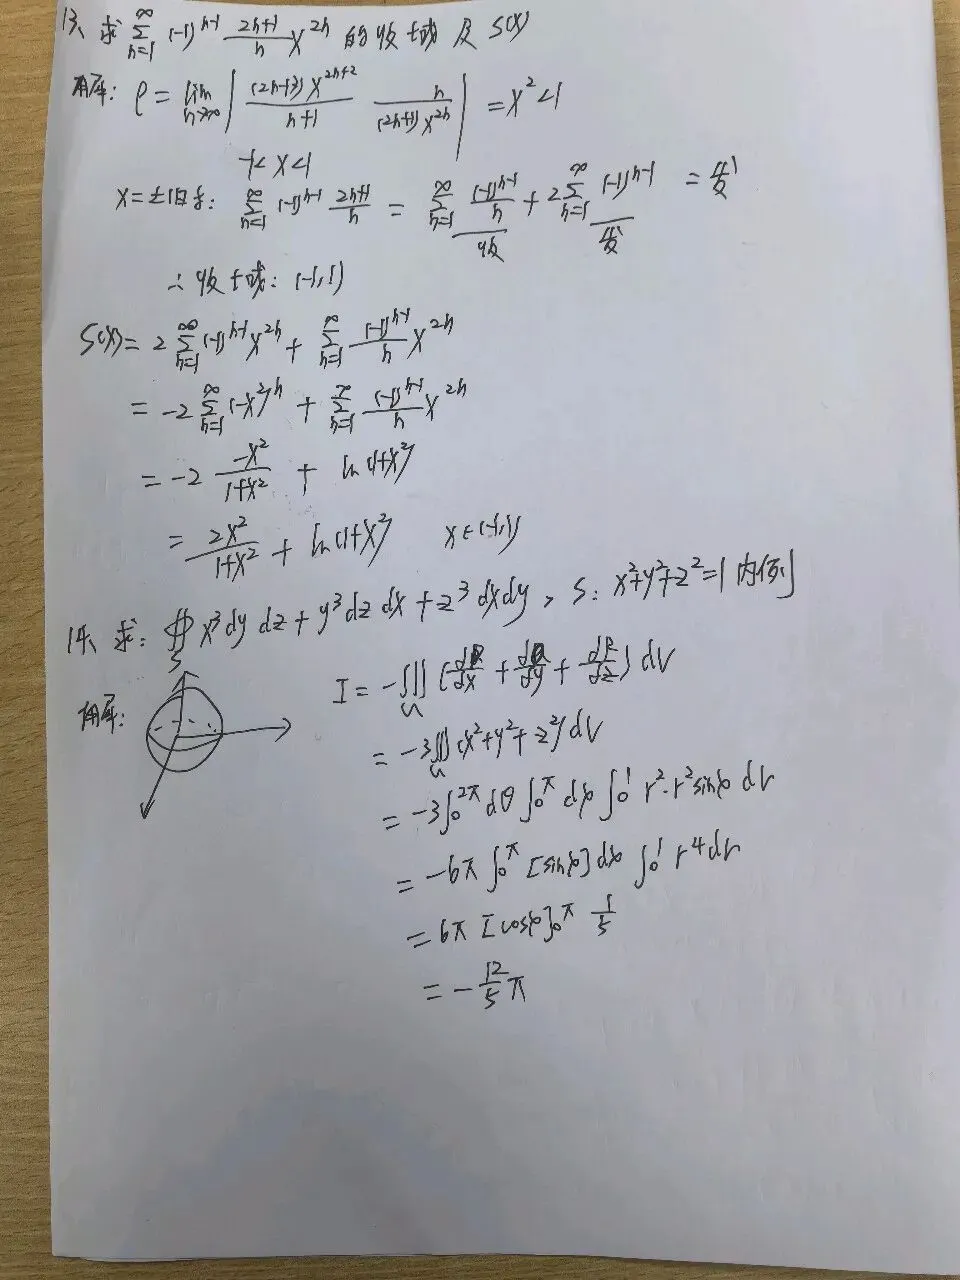 13、求 ∑_{n=1}^{∞} (-1)^{n-1} \frac{2n+1}{n} x^{2n} 的收域及 S(x)
解: ρ = lim_{n→∞} | \frac{(2n+3) x^{2n+2}}{n+1} \frac{n}{(2n+1) x^{2n}} | = x² < 1
-1 < x < 1
x = ±1时: ∑_{n=1}^{∞} (-1)^{n-1} \frac{2n+1}{n} = ∑_{n=1}^{∞} \frac{(-1)^{n-1}}{n} + 2∑_{n=1}^{∞} (-1)^{n-1} = 发
收 发
∴ 收域: (-1,1)
S(x) = 2 ∑_{n=1}^{∞} (-1)^{n-1} x^{2n} + ∑_{n=1}^{∞} \frac{(-1)^{n-1}}{n} x^{2n}
= -2 ∑_{n=1}^{∞} (-x²)^n + ∑_{n=1}^{∞} \frac{(-1)^{n-1}}{n} x^{2n}
= -2 \frac{-x²}{1+x²} + ln(1+x²)
= \frac{2x²}{1+x²} + ln(1+x²) x∈(-1,1)
14、求: ∯_S x³dydz + y³dzdx + z³dxdy, S: x²+y²+z²=1 内侧
解: I = -∭_Ω (\frac{dP}{dx} + \frac{dQ}{dy} + \frac{dR}{dz}) dV
= -3∭_Ω (x²+y²+z²) dV
= -3∫_0^{2π} dθ ∫_0^π dφ ∫_0^1 r²·r² sinφ dr
= -6π ∫_0^π [sinφ] dφ ∫_0^1 r⁴ dr
= 6π [cosφ]_0^π \frac{1}{5}
= -\frac{12}{5}π